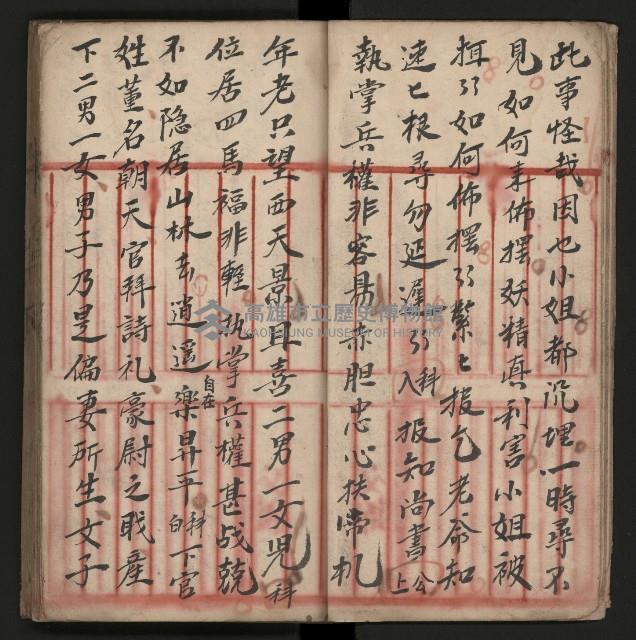 此事怪哉因也小姐都沉埋一時尋不
見如何來佈擺妖精真利害小姐被
掠引如何佈擺引緊匕报乞老爺知
速匕根尋勿延遲引入科报知尚書公上
執掌兵權非容易赤胆忠心扶帝机
年老只望西天景且喜二男一女児科
位居四馬福非輕执掌兵權甚战兢
不如隐居山林去逍遥自在樂昇平科白下官
姓董名朝天官拜詩礼豪尉之职產
下二男一女男子乃是偏妻所生女子
高雄市立歷史博物館
KAOHSIUNG MUSEUM OF HISTORY